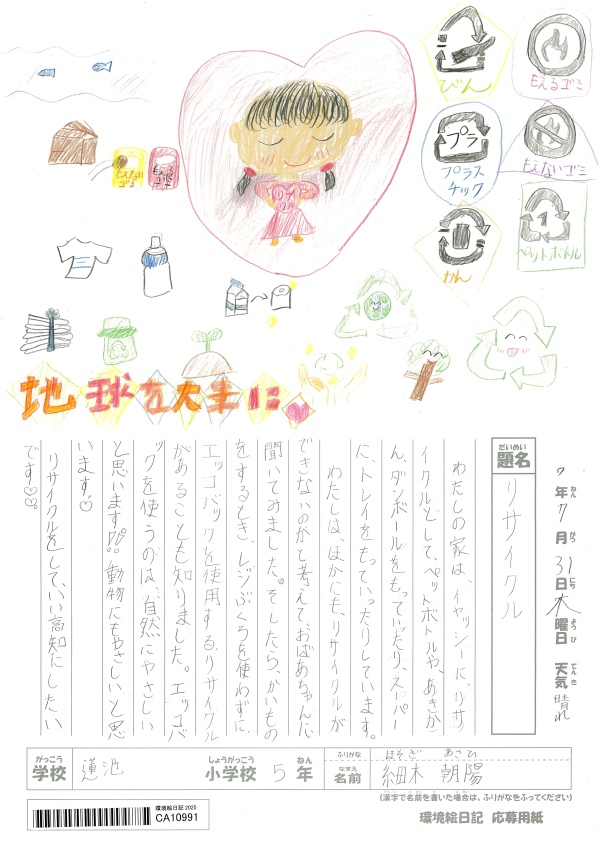 びん
もえるゴミ
プラ
プラスチック
もえないゴミ
かん
1
ペットボトル
もえない
ゴミ
もえる
ゴミ
地球を大事に
7年7月31日木曜日 天気 晴れ
ねん
がつ
にち
ようび
てんき
だいめい
題名
リサイクル
わたしの家は、イャッシーに、リサ
イクルとして、ペットボトルや、あきか
ん、ダンボールをもっていたり、スーパー
に、トレイをもっていったりしています。
わたしは、ほかにも、リサイクルが
できないのかと考えて、おばあちゃんに
聞いてみました。そしたら、かいもの
をするとき、レジぶくろを使わずに、
エッコバックを使用する、リサイクル
があることも知りました。エッコバ
ッグを使うのは、自然にやさしい
と思います!!!! 動物にもやさしいと思
います♡
リサイクルをして、いい高知にしたい
です♡♡
がっこう
学校
蓮池
しょうがっこう
小学校
5
ねん
年
ふりがな
ほそぎ あさひ
なまえ
名前
細木 朝陽
(漢字で名前を書いた場合は、ふりがなをふってください)
環境絵日記 2025
CA10991
環境絵日記 応募用紙